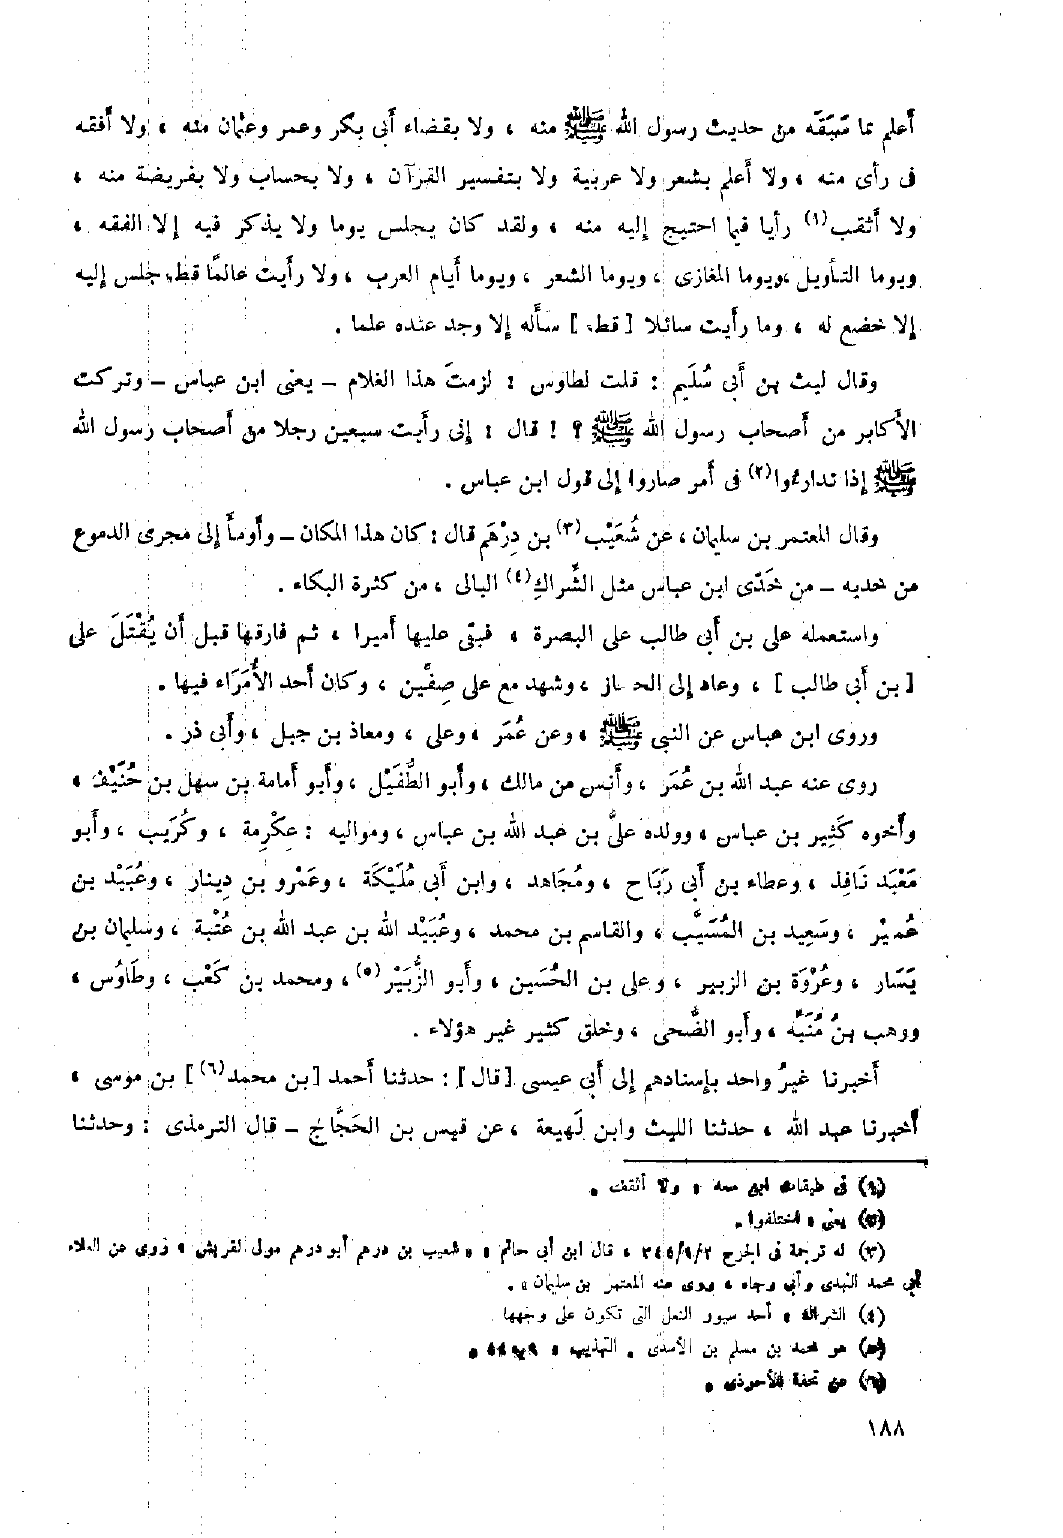 أعلم بما سَبَقَه من حديث رسول الله ﷺ منه ، ولا بقضاء أبى بكر وعمر وعثمان منه ، ولا أفقه
فى رأى منه ، ولا أعلم بشعر ولا عربية ولا بتفسير القرآن ، ولا بحساب ولا بفريضة منه ،
ولا أثقب(١) رأيا فيما احتيج إليه منه ، ولقد كان يجلس يوما ولا يذكر فيه إلا الفقه ،
ويوما التأويل ، ويوما المغازى ، ويوما الشعر ، ويوما أيام العرب ، ولا رأيت عالمًا قط جلس إليه
إلا خضع له ، وما رأيت سائلا [ قط ] سأله إلا وجد عنده علما .
وقال ليث بن أبى سُلَيم : قلت لطاوس : لزمتَ هذا الغلام – يعنى ابن عباس – وتركت
الأكابر من أصحاب رسول الله ﷺ ؟ ! قال : إنى رأيت سبعين رجلا من أصحاب رسول الله
ﷺ إذا تدارءوا(٢) فى أمر صاروا إلى قول ابن عباس .
وقال المعتمر بن سليمان ، عن شُعَيْب(٣) بن دِرْهَم قال : كان هذا المكان – وأومأَ إلى مجرى الدموع
من خديه – من خَدّى ابن عباس مثل الشِّراكِ(٤) البالى ، من كثرة البكاء .
واستعمله على بن أبى طالب على البصرة ، فبقى عليها أميرا ، ثم فارقها قبل أن يُقْتَلَ على
[ بن أبى طالب ] ، وعاد إلى الحجاز ، وشهد مع على صِفّين ، وكان أحد الأُمَرَاء فيها .
وروى ابن عباس عن النبى ﷺ ، وعن عُمَر ، وعلى ، ومعاذ بن جبل ، وأبى ذر .
روى عنه عبد الله بن عُمَر ، وأنس من مالك ، وأبو الطُّفَيْل ، وأبو أمامة بن سهل بن حُنَيْف ،
وأخوه كَثِير بن عباس ، وولده علىُّ بن عبد الله بن عباس ، ومواليه : عِكْرِمة ، وكُرَيب ، وأبو
مَعْبَد نَافِذ ، وعطاء بن أبى رَبَاح ، ومُجَاهد ، وابن أبى مُلَيْكَة ، وعَمْرو بن دِينار ، وعُبَيْد بن
عُميْر ، وسَعِيد بن المُسَيَّب ، والقاسم بن محمد ، وعُبَيْد الله بن عبد الله بن عُتْبة ، وسليمان بن
يَسَار ، وعُرْوَة بن الزبير ، وعلى بن الحُسَين ، وأبو الزُّبَيْر(٥) ، ومحمد بن كَعْب ، وطَاوُس ،
ووهب بنُ مُنَبِّه ، وأبو الضُّحى ، وخلق كثير غير هؤلاء .
أخبرنا غيرُ واحد بإسنادهم إلى أبى عيسى [قال] : حدثنا أحمد [بن محمد(٦)] بن موسى ،
أخبرنا عبد الله ، حدثنا الليث وابن لَهيعة ، عن قيس بن الحَجَّاج – قال الترمذى : وحدثنا
(١) فى طبقات ابن سعد : ولا أثقف .
(٢) يعنى : اختلفوا .
(٣) له ترجمة فى الجرح ٣٤٥/١/٢ ، قال ابن أبى حاتم : « شعيب بن درهم أبو درهم مولى لقريش ، روى عن العلاء
أبى محمد النهدى وأبى رجاء ، روى عنه المعتمر بن سليمان » .
(٤) الشراك : أحد سيور النعل التى تكون على وجهها
(٥) هو محمد بن مسلم بن الأسدى . التهذيب :
(٦) عن تحفة الأحوذى .
١٨٨